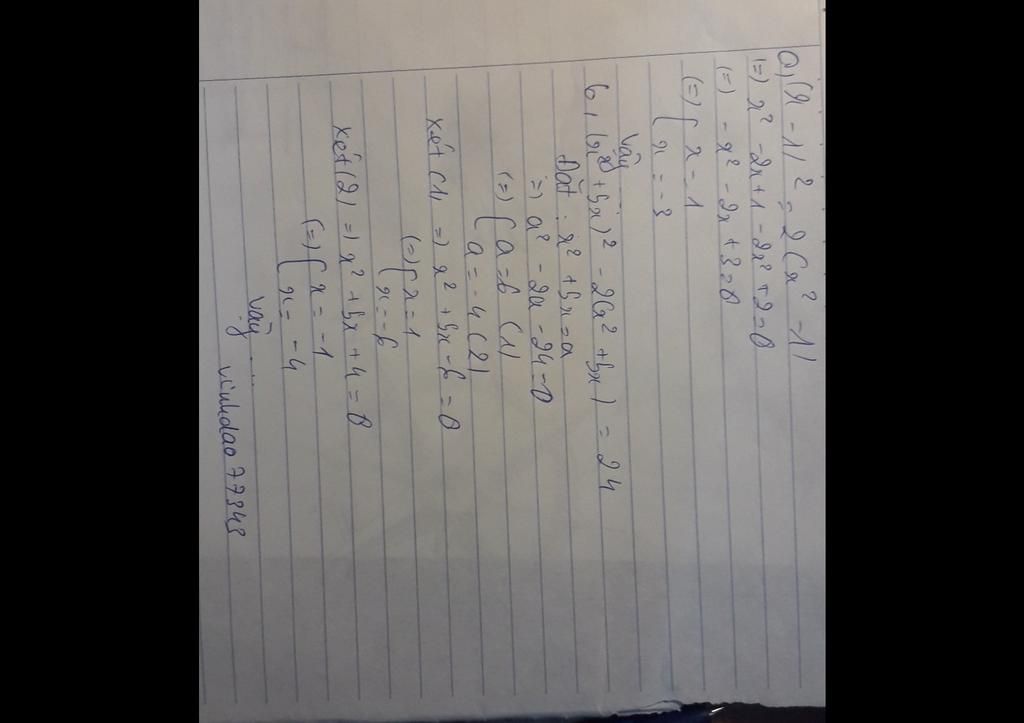 a, (x - 1)² = 2(x² - 1)
(=) x² - 2x + 1 - 2x² + 2 = 0
(=) - x² - 2x + 3 = 0
(=) { x = 1
{ x = -3
Vậy
b, (x² + 5x)² - 2(x² + 5x) = 24
Đặt : x² + 5x = a
=) a² - 2a - 24 = 0
(=) { a = 6 (1)
{ a = -4 (2)
xét (1) =) x² + 5x - 6 = 0
(=) { x = 1
{ x = -6
xét (2) =) x² + 5x + 4 = 0
(=) { x = -1
{ x = -4
Vậy ...
vinhdao77348